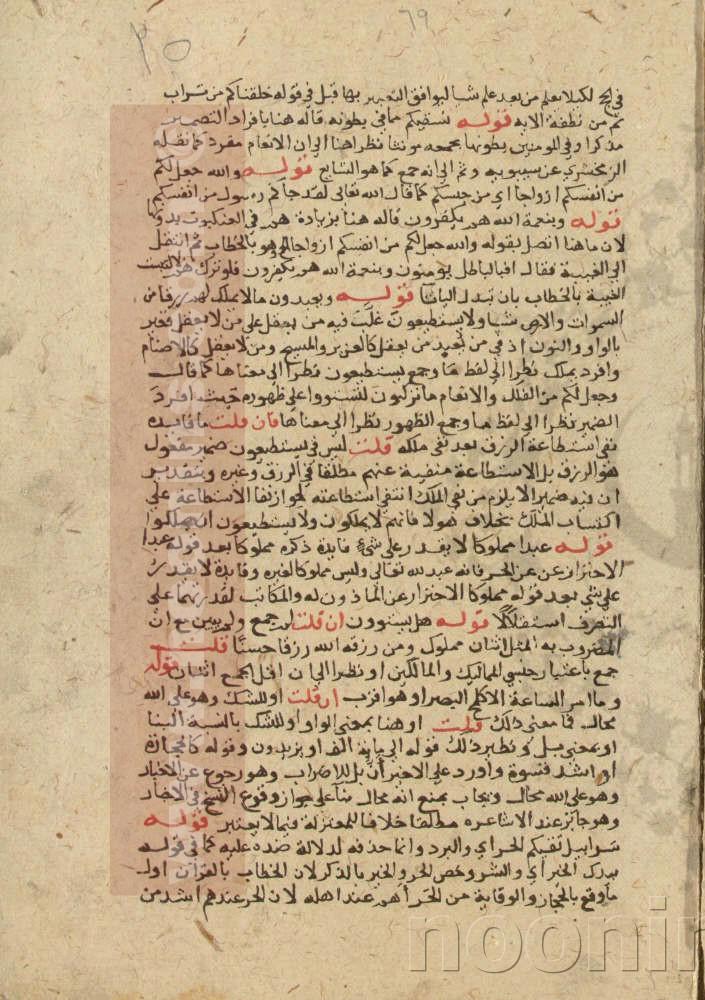 ٦٩
٢٥
في الحج لكيلا يعلم من بعد علم شيا ليوافق التعبير بها قبل في قوله خلقناكم من تراب
ثم من نطفة الاية قوله نسقيكم مما في بطونه قاله هنا بافراد الضمير
مذكرا وفي المومنين بطونها بجمعه مونثا نظرا هنا الى ان الانعام مفرد كما نقله
الزمخشري عن سيبويه وثم الى انه جمع كما هو الشايع قوله والله جعل لكم
من انفسكم ازواجا اي من جنسكم كما قال الله تعالى لقد جاكم رسول من انفسكم
قوله وبنعمة الله هم يكفرون قاله هنا بزيادة هم وفي العنكبوت بدونها
لان ما هنا اتصل بقوله والله جعل لكم من انفسكم ازواجا الخ وهو بالخطاب ثم انتقل
الى الغيبة فقال افبالباطل يومنون وبنعمة الله هم يكفرون فلو ترك هم لالتبست
الغيبة بالخطاب بان تبدل الياء تا قوله ويعبدون ما لا يملك لهم رزقا من
السموات والارض شيا ولا يستطيعون غلب فيه من يعقل على من لا يعقل فعبر
بالواو والنون اذ في من يعبد من يعقل كالعزير والمسيح ومن لا يعقل كالاصنام
وافرد يملك نظرا الى لفظ ما وجمع يستطيعون نظرا الى معناها كما قال
وجعل لكم من الفلك والانعام ما تركبون لتستووا على ظهوره حيث افرد
الضمير نظرا الى لفظ ما وجمع الظهور نظرا الى معناها فان قلت ما فايدة
نفي استطاعة الرزق بعد نفي ملكه قلت ليس في يستطيعون ضمير مفعول
هو الرزق بل الاستطاعة منفية عنهم مطلقا في الرزق وغيره وبتقدير
ان فيه ضميرا لا يلزم من نفي الملك انتفى استطاعته لجواز بقا الاستطاعة على
اكتساب الملك بخلاف هولا فانهم لا يملكون ولا يستطيعون ان يملكوا
قوله عبدا مملوكا لا يقدر على شيء فايدة ذكره مملوكا بعد قوله عبدا
الاحتراز عن الحر فانه عبد لله تعالى وليس مملوكا لغيره وفايدة لا يقدر
على شي بعد قوله مملوكا الاحتراز عن الماذون له والمكاتب لقدرتهما على
التصرف استقلالا قوله هل يستوون ان قلت لم جمع ولم يثن مع ان
المضروب به المثل اثنان مملوك ومن رزقه الله رزقا حسنا قلت
جمع باعتبار جنسي المماليك والمالكين او نظرا الى ان اقل الجمع اثنان قوله
وما امر الساعة الا كلمح البصر او هو اقرب ان قلت او للشك وهو على الله
محال فما معنى ذلك قلت او هنا بمعنى الواو او للشك بالنسبة الينا
او بمعنى بل ونظير ذلك قوله الى ماية الف او يزيدون وقوله كالحجارة
او اشد قسوة واورد على الاخير ان بل للاضراب وهو رجوع عن الاخبار
وهو على الله محال ويجاب بمنع انه محال بنا على جواز وقوع النسخ في الاخبار
وهو جايز عند الاشاعره مطلقا خلافا للمعتزلة فيما لا يعتبر قوله
سرابيل تقيكم الحر اي والبرد وانما حذفه لدلالة ضده عليه كما في قوله
بيدك الخير اي والشر وخص الحر والخير بالذكر لان الخطاب بالقران اول
ما وقع بالحجاز والوقاية من الحر اهم عند اهله لان الحر عندهم اشد من